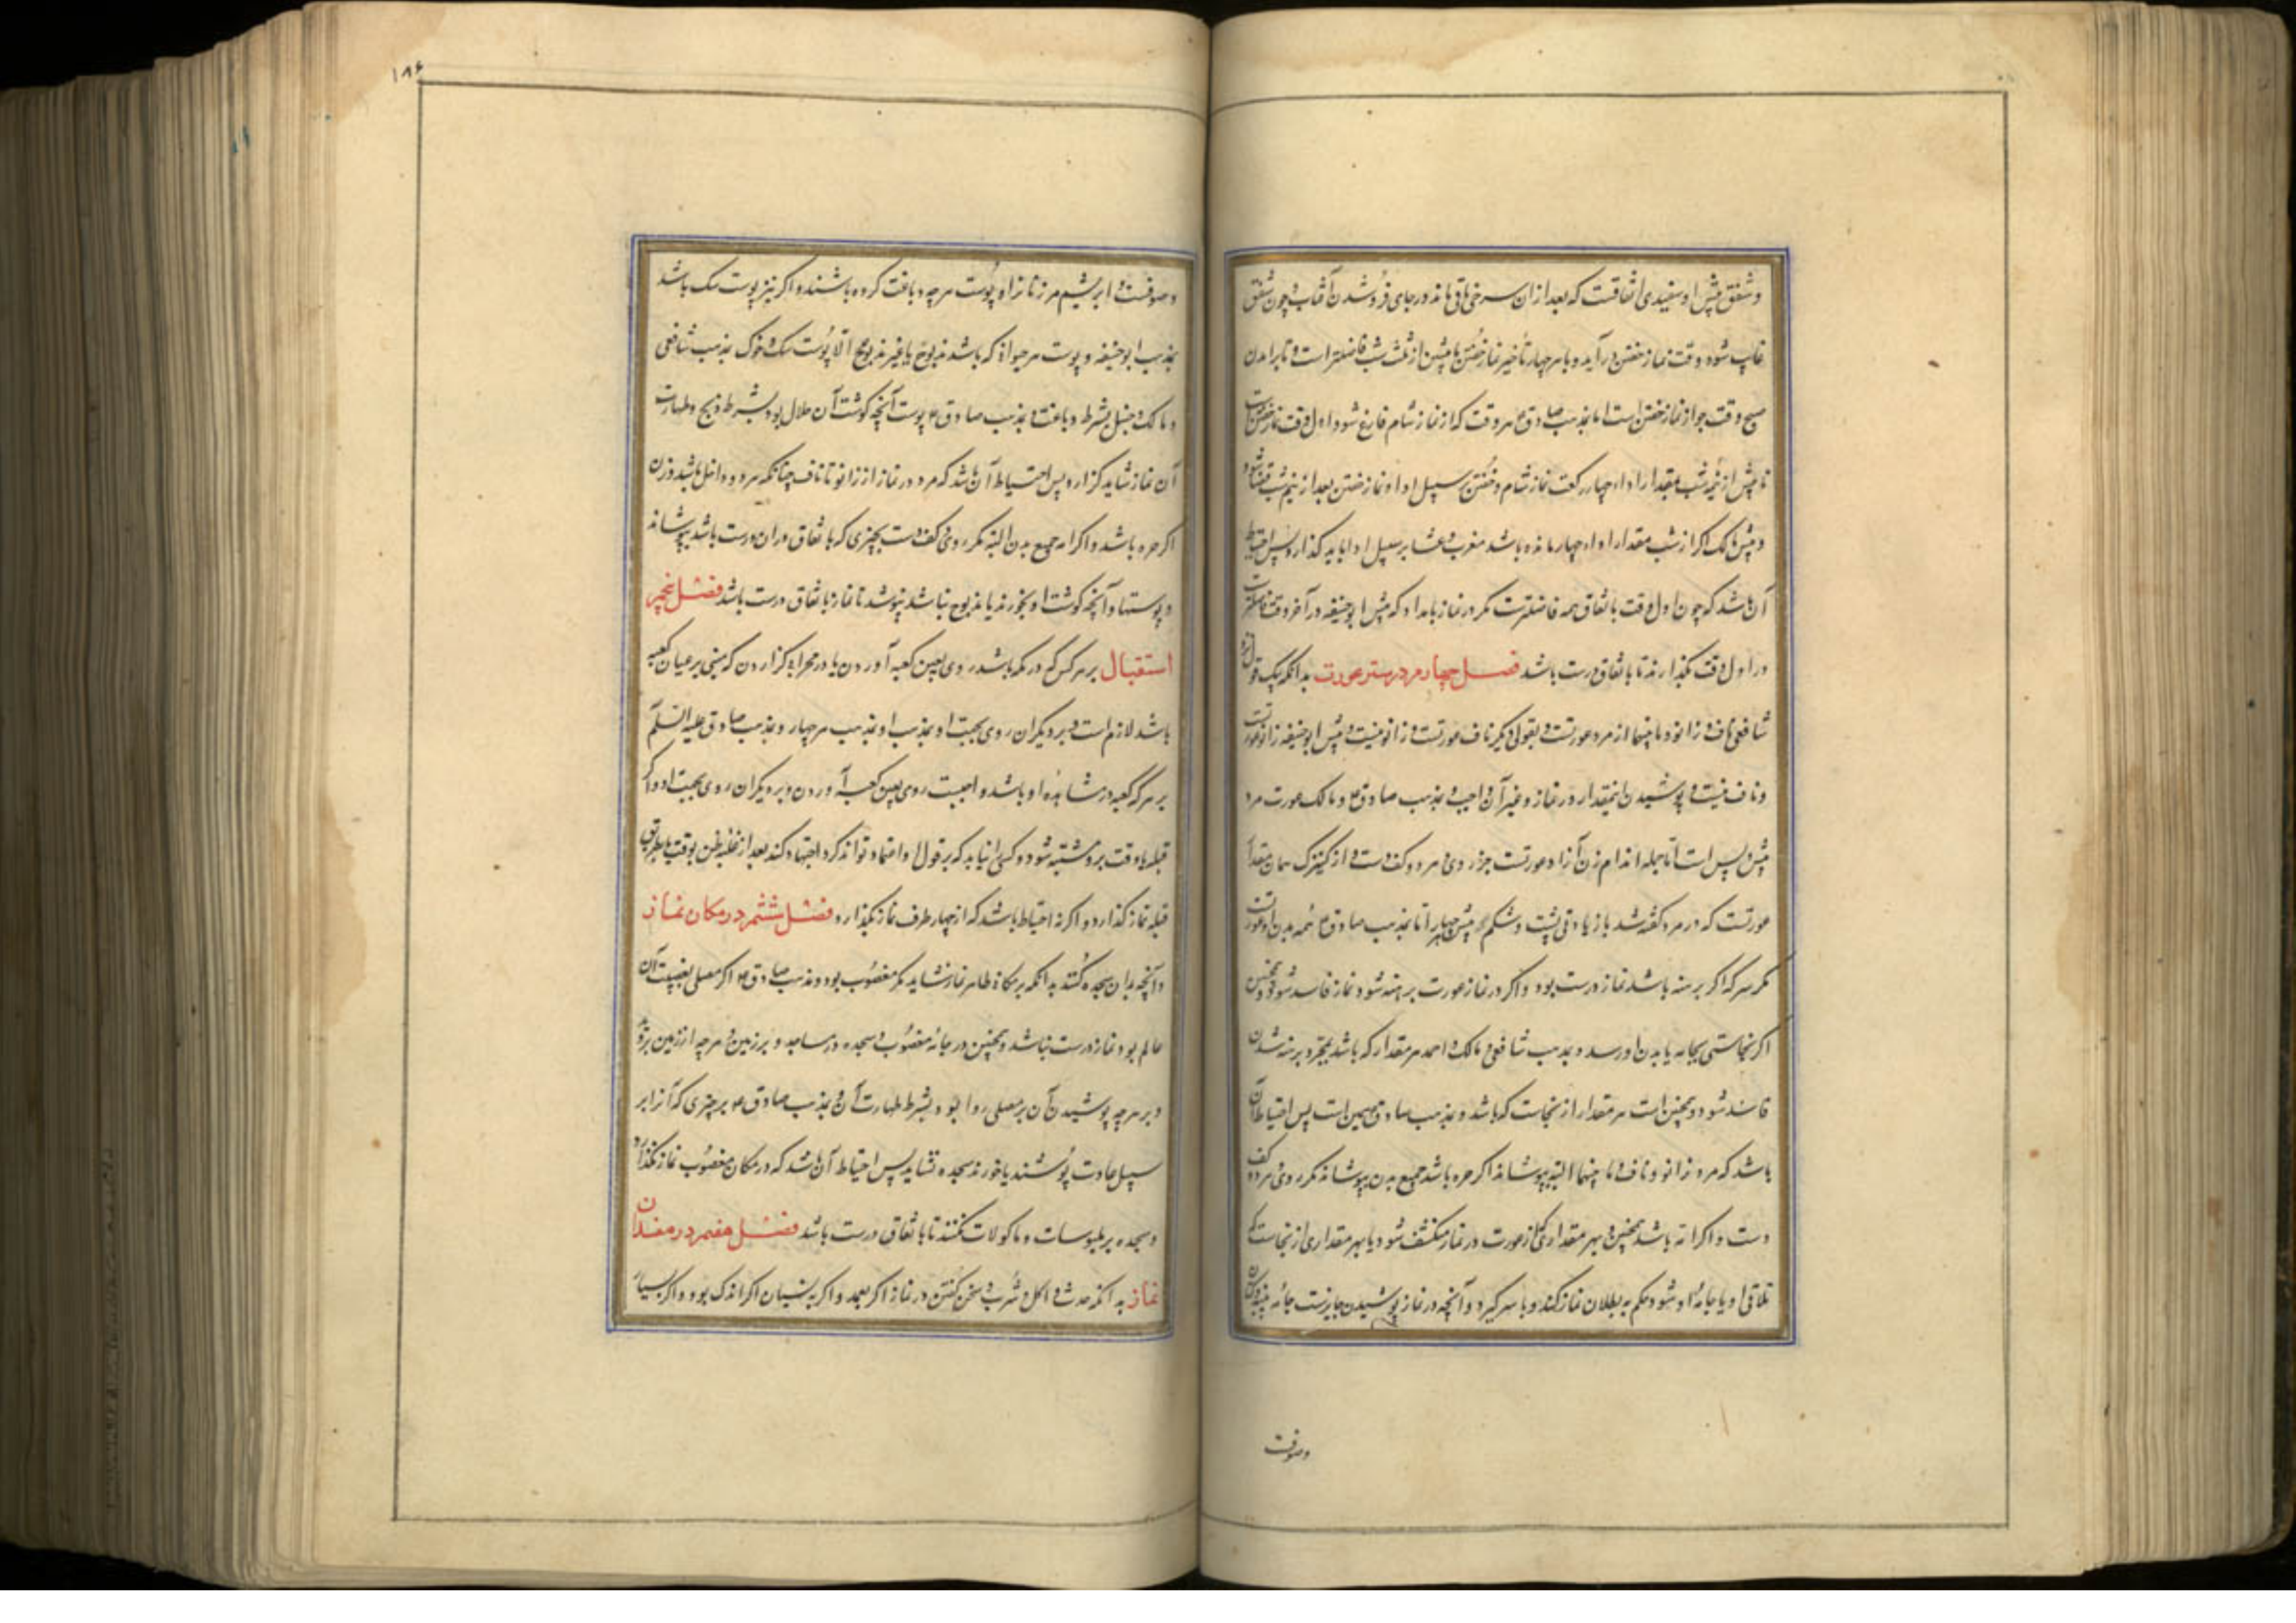 وشفق پیش او سفیدی افقست که بعد از ان سرخی باقی ماند در جای فرو شدن آفتاب و چون شفق
غایب شود وقت نماز خفتن در آید و با هر چهار تأخیر نماز خفتن تا پیش از ثلث شب فاضلتر است و تا برامدن
صبح وقت جواز نماز خفتن است اما بمذهب صادق ع هر وقت که از نماز شام فارغ شود اول وقت نماز خفتن است
تا پیش از نیم شب بمقدار اداء چهار رکعت نماز شام و خفتن بر سبیل ادا و نماز خفتن بعد از نیم شب قضا شود
و پیش مالک اگر از شب مقدار اداء چهار مانده باشد مغرب و عشا بر سبیل ادا باید گذارد پس احتیاط
آن باشد که چون اول وقت باتفاق همه فاضلترست مگر در نماز بامداد که پیش ابوحنیفه در آخر وقت فاضلترست
در اول وقت بگذارند تا باتفاق درست باشد فصل چهارم در ستر عورت بدانکه بیک قول از
شافعی ناف و زانو و ما بینهما از مرد عورتست و بقولی دیگر ناف عورتست و زانو نیست و پیش ابوحنیفه زانو عورتست
و ناف نیست و پوشیدن اینمقدار در نماز و غیر آن واجب و بمذهب صادق ع و مالک عورت مرد
پیش و پس است اما جمله اندام زن آزاد عورتست جز روی و هر دو کف دست و از کنیزک همان مقدار
عورتست که در مرد گفته شد با زیادتی پشت و شکم پیش چهار اما بمذهب صادق ع همه بدن او عورتست
مگر سر که اگر برهنه باشد نماز درست بود و اگر در نماز عورت برهنه شود نماز فاسد شود و همچنین
اگر نجاستی بجامه یا بدن او رسد و بمذهب شافعی و مالک و احمد هر مقدار که باشد بمجرد برهنه شدن
فاسد شود و همچنین است هر مقدار از نجاست که باشد و بمذهب صادق همین است پس احتیاط آن
باشد که مرد زانو و ناف و ما بینهما البته بپوشاند اگر حره باشد جمیع بدن بپوشاند مگر روی و هر دو کف
دست و اگر امه باشد همچنین و بهر مقداری که از عورت در نماز منکشف شود یا بهر مقداری از نجاست که
تلاقی او یا جامهٔ او شود حکم به بطلان نماز کند و با سر گیرد و آنچه در نماز پوشیدن جایزست جامه پنبه و کتان
وصوفست
۱۸۶
و صوفست و ابریشم مر زنانرا و پوست هر چه دباغت کرده باشند و اگر نیز پوست سک باشد
بمذهب ابوحنیفه و پوست هر حیوان که باشد مذبوح یا غیر مذبوح الا پوست سک و خوک بمذهب شافعی
و مالک و حنبل بشرط دباغت و بمذهب صادق ع پوست آنچه گوشت آن حلال بود بشرط ذبح و طهارت
آن نماز شاید گزارد پس احتیاط آن باشد که مرد در نماز از زانو تا ناف چنانکه هر دو داخل باشد و زن
اگر حره باشد و اگر امه جمیع بدن البته مگر روی و کف دست بچیزی که باتفاق در ان درست باشد بپوشاند
و پوستها و آنچه گوشت او نخورند یا مذبوح نباشد نپوشد تا نماز باتفاق درست باشد فصل پنجم
استقبال بر هر کس که در مکه باشد روی بعین کعبه آوردن یا در محرابی گزاردن که مبنی بر عیان کعبه
باشد لازم است و بر دیگران روی بجهت او بمذهب او بمذهب هر چهار و بمذهب صادق علیه السلم
بر هر که کعبه در مشاهدهٔ او باشد واجبست روی بعین کعبه آوردن و بر دیگران روی بجهت او و اگر
قبله یا وقت برو مشتبه شود و کسی را نیابد که بر قول او اعتماد تواند کرد اجتهاد کند بعد از غلبه ظن بوقت یا بطریق
قبله نماز گذارد و اگر نه احتیاط باشد که از چهار طرف نماز بگذارد فصل ششم در مکان نماز
و آنچه بدان سجده کنند بدانکه بر مکان طاهر نماز شاید مگر مغصوب بود و مذهب صادق ع اگر مصلی بغصبیت آن
عالم بود نماز درست نباشد و همچنین در جامهٔ مغصوب و سجده در مساجد و بر زمین و هر چه از زمین بروید
و بر هر چه پوشیدن آن بر مصلی روا بود بشرط طهارت آن و بمذهب صادق ع بر چیزی که آنرا بر
سبیل عادت پوشند یا خورند سجده نشاید پس احتیاط آن باشد که در مکان مغصوب نماز نگذارد
و سجده بر ملبوسات و ماکولات نکنند تا باتفاق درست باشد فصل هفتم در مفسدان
نماز بدانکه حدث و اکل و شرب و سخن گفتن در نماز اگر بعمد و اگر به نسیان اگر اندک بود و اگر بسیار